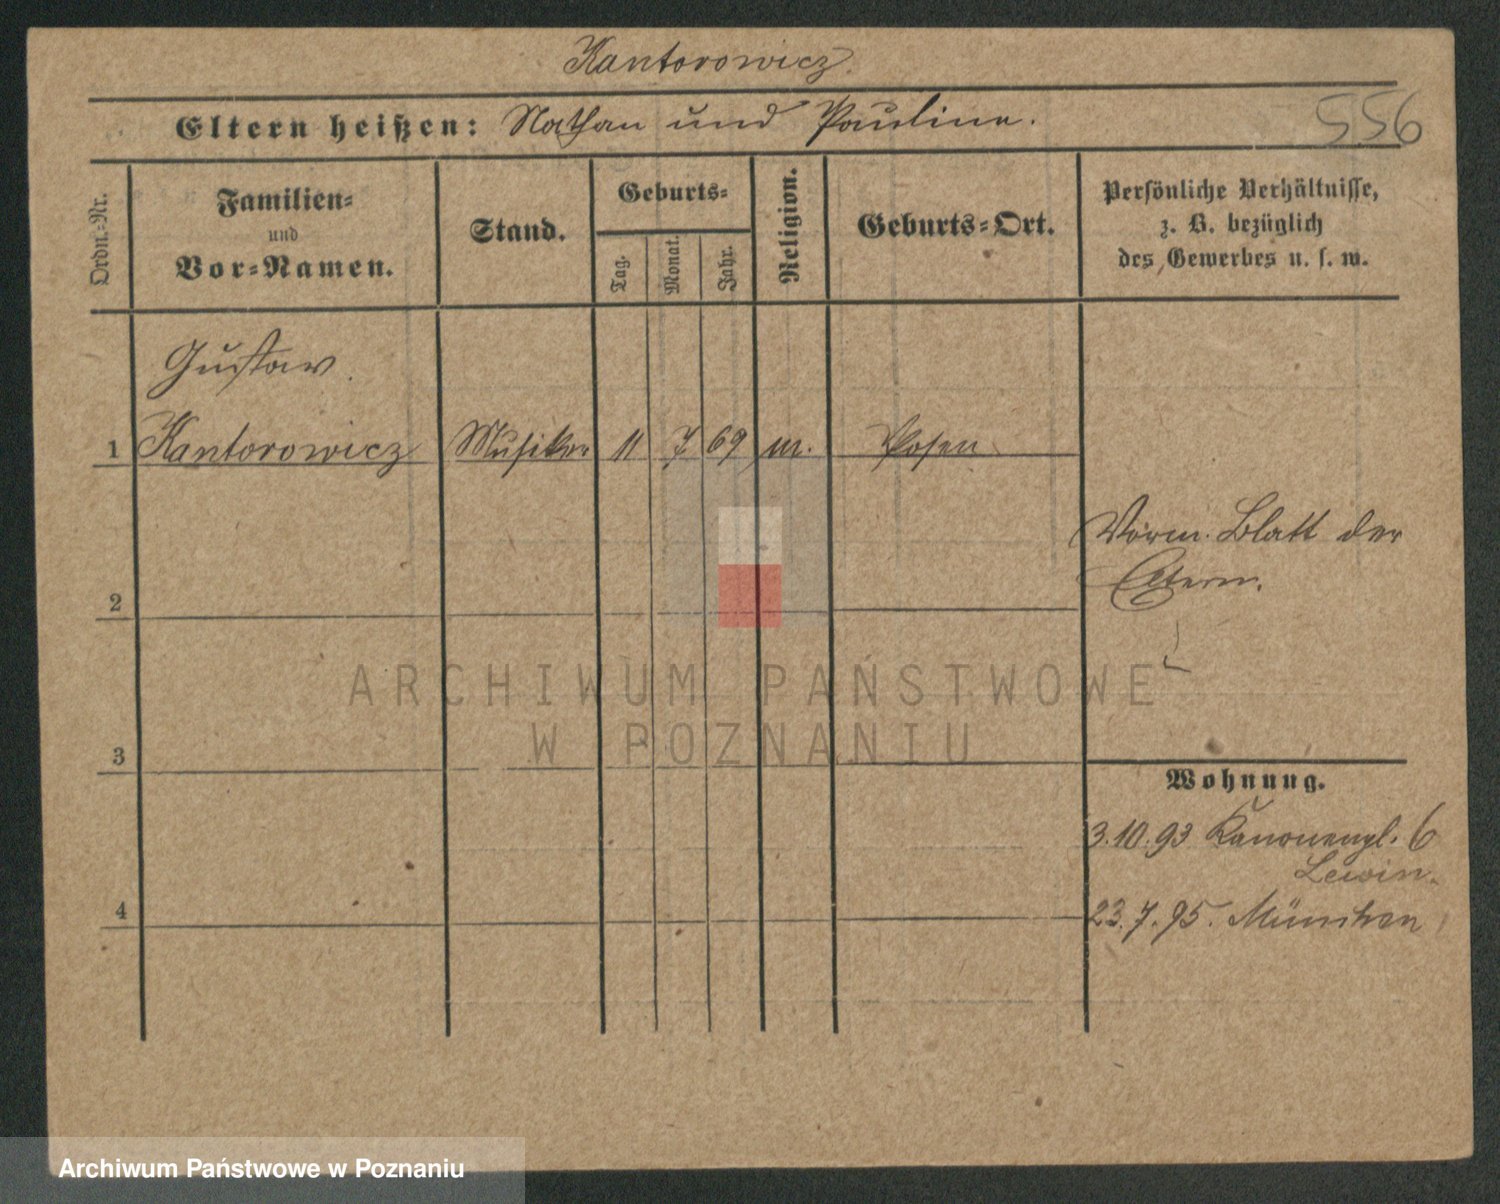 Kantorowicz.
Eltern heißen: Nathan und Pauline.
556
Ordn.-Nr.
Familien-
und
Vor-Namen.
Stand.
Geburts-
Tag.
Monat.
Jahr.
Religion.
Geburts-Ort.
Persönliche Verhältnisse,
z. B. bezüglich
des Gewerbes u. s. w.
Gustav.
1 Kantorowicz Musiker 11 7 69 m. Posen
Vorm. Blatt der
Eltern.
2
ARCHIWUM PAŃSTWOWE
W POZNANIU
3
Wohnung.
3.10.93 Kanonenpl. 6
Lewin.
4
23.7.95. München
Archiwum Państwowe w Poznaniu